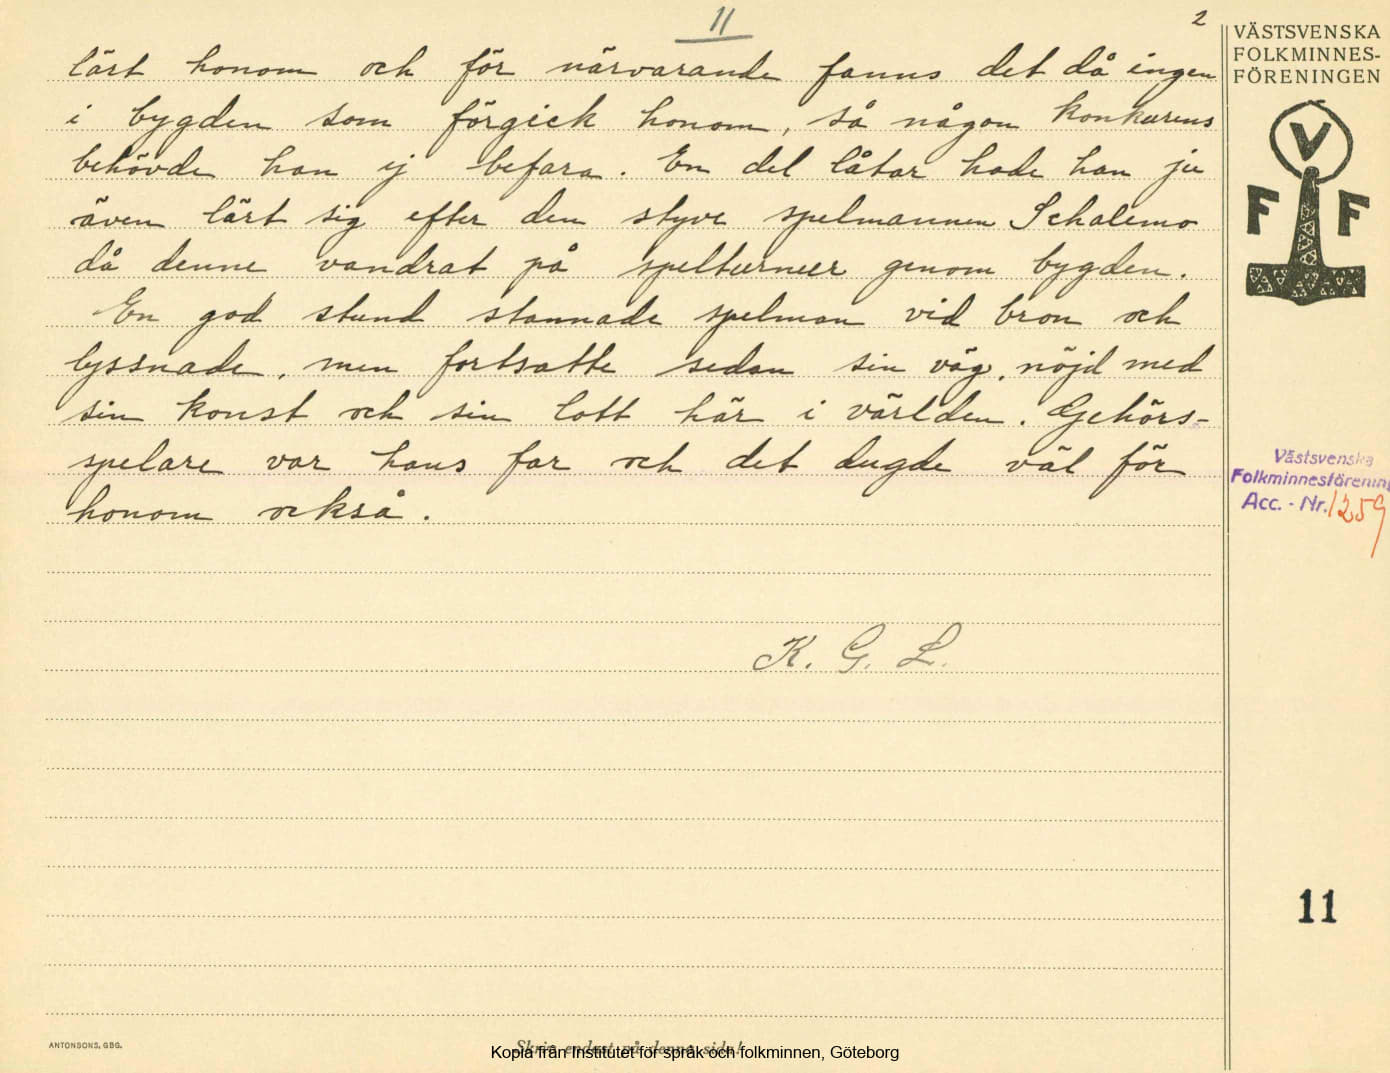 11
2
lärt honom och för närvarande fanns det då ingen
i bygden som förgick honom, så någon konkurens
behövde han ej befara. En del låtar hade han ju
även lärt sig efter den styve spelmannen Schalemo
då denne vandrat på spelturneer genom bygden.
En god stund stannade spelman vid bron och
lyssnade, men fortsatte sedan sin väg, nöjd med
sin konst och sin lott här i världen. Gehörs-
spelare var hans far och det dugde väl för
honom också.
K. G. L.
VÄSTSVENSKA
FOLKMINNES-
FÖRENINGEN
V
F F
Västsvenska
Folkminnesförening
Acc. - Nr. 1259
11
ANTONSONS, GBG.
Skriv endast på denna sida!
Kopia från Institutet för språk och folkminnen, Göteborg